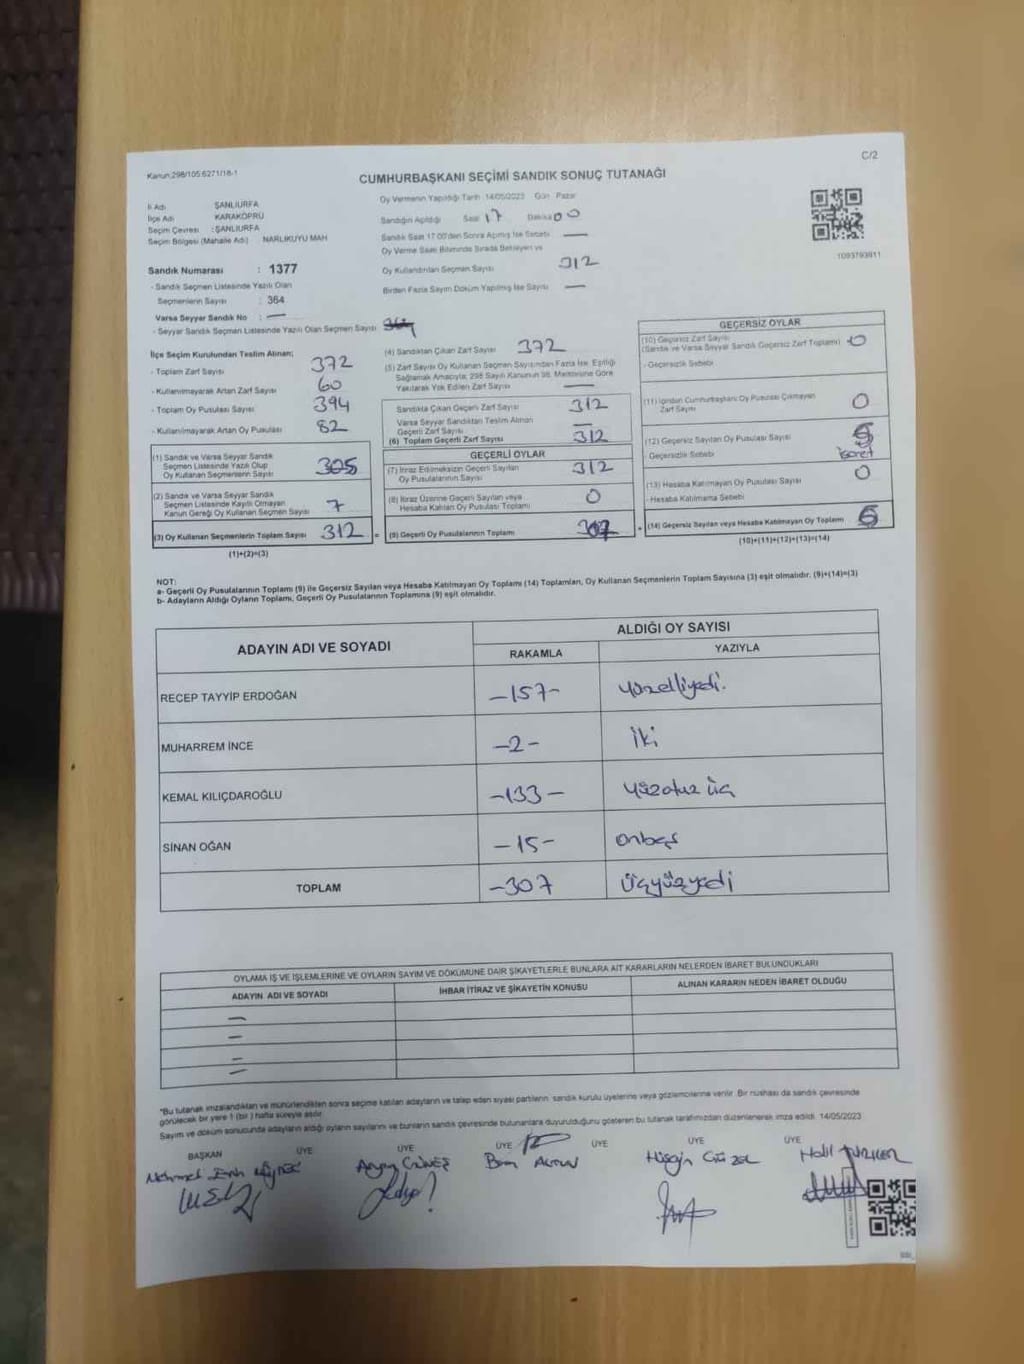 Kanun:298/105.6271/18-1
C/2
CUMHURBAŞKANI SEÇİMİ SANDIK SONUÇ TUTANAĞI
İl Adı : ŞANLIURFA
İlçe Adı : KARAKÖPRÜ
Seçim Çevresi : ŞANLIURFA
Seçim Bölgesi (Mahalle Adı) NARLIKUYU MAH
Sandık Numarası : 1377
- Sandık Seçmen Listesinde Yazılı Olan
Seçmenlerin Sayısı : 364
Varsa Seyyar Sandık No : —
- Seyyar Sandık Seçmen Listesinde Yazılı Olan Seçmen Sayısı
Oy Vermenin Yapıldığı Tarih 14/05/2023 Gün Pazar
Sandığın Açıldığı Saat 17 Dakika 00
Sandık Saat 17:00'den Sonra Açılmış İse Sebebi —
Oy Verme Saati Bitiminde Sırada Bekleyen ve
Oy Kullandırılan Seçmen Sayısı 312
Birden Fazla Sayım Döküm Yapılmış İse Sayısı —
1093793911
İlçe Seçim Kurulundan Teslim Alınan;
- Toplam Zarf Sayısı 372
- Kullanılmayarak Artan Zarf Sayısı 60
- Toplam Oy Pusulası Sayısı 394
- Kullanılmayarak Artan Oy Pusulası 82
(1) Sandık ve Varsa Seyyar Sandık
Seçmen Listesinde Yazılı Olup
Oy Kullanan Seçmenlerin Sayısı 305
(2) Sandık ve Varsa Seyyar Sandık
Seçmen Listesinde Kayıtlı Olmayan
Kanun Gereği Oy Kullanan Seçmen Sayısı 7
(3) Oy Kullanan Seçmenlerin Toplam Sayısı 312 =
(1)+(2)=(3)
(4) Sandıktan Çıkan Zarf Sayısı 372
(5) Zarf Sayısı Oy Kullanan Seçmen Sayısından Fazla İse, Eşitliği
Sağlamak Amacıyla; 298 Sayılı Kanunun 98. Maddesine Göre
Yakılarak Yok Edilen Zarf Sayısı —
Sandıkta Çıkan Geçerli Zarf Sayısı 312
Varsa Seyyar Sandıktan Teslim Alınan
Geçerli Zarf Sayısı —
(6) Toplam Geçerli Zarf Sayısı 312
GEÇERLİ OYLAR
(7) İtiraz Edilmeksizin Geçerli Sayılan
Oy Pusulalarının Sayısı 312
(8) İtiraz Üzerine Geçerli Sayılan veya
Hesaba Katılan Oy Pusulası Toplamı 0
(9) Geçerli Oy Pusulalarının Toplamı 307 +
GEÇERSİZ OYLAR
(10) Geçersiz Zarf Sayısı
(Sandık ve Varsa Seyyar Sandık Geçersiz Zarf Toplamı) 0
- Geçersizlik Sebebi
(11) İçinden Cumhurbaşkanı Oy Pusulası Çıkmayan
Zarf Sayısı 0
(12) Geçersiz Sayılan Oy Pusulası Sayısı 5
- Geçersizlik Sebebi işaret
(13) Hesaba Katılmayan Oy Pusulası Sayısı 0
- Hesaba Katılmama Sebebi
(14) Geçersiz Sayılan veya Hesaba Katılmayan Oy Toplamı 5
(10)+(11)+(12)+(13)=(14)
NOT:
a- Geçerli Oy Pusulalarının Toplamı (9) ile Geçersiz Sayılan veya Hesaba Katılmayan Oy Toplamı (14) Toplamları, Oy Kullanan Seçmenlerin Toplam Sayısına (3) eşit olmalıdır. (9)+(14)=(3)
b- Adayların Aldığı Oyların Toplamı, Geçerli Oy Pusulalarının Toplamına (9) eşit olmalıdır.
ADAYIN ADI VE SOYADI
ALDIĞI OY SAYISI
RAKAMLA YAZIYLA
RECEP TAYYİP ERDOĞAN -157- Yüzelliyedi.
MUHARREM İNCE -2- İki
KEMAL KILIÇDAROĞLU -133- Yüzotuz üç
SİNAN OĞAN -15- onbeş
TOPLAM -307 Üçyüzyedi
OYLAMA İŞ VE İŞLEMLERİNE VE OYLARIN SAYIM VE DÖKÜMÜNE DAİR ŞİKAYETLERLE BUNLARA AİT KARARLARIN NELERDEN İBARET BULUNDUKLARI
ADAYIN ADI VE SOYADI İHBAR İTİRAZ VE ŞİKAYETİN KONUSU ALINAN KARARIN NEDEN İBARET OLDUĞU
—
—
—
—
*Bu tutanak imzalandıktan ve mühürlendikten sonra seçime katılan adayların ve talep eden siyasi partilerin sandık kurulu üyelerine veya gözlemcilerine verilir. Bir nüshası da sandık çevresinde
görülecek bir yere 1 (bir) hafta süreyle asılır.
Sayım ve döküm sonucunda adayların aldığı oyların sayılarını ve bunların sandık çevresinde bulunanlara duyurulduğunu gösteren bu tutanak tarafımızdan düzenlenerek imza edildi. 14/05/2023
BAŞKAN ÜYE ÜYE ÜYE ÜYE ÜYE
Mehmet GÜNEŞ ALTUN Hüseyin GÜZEL Halil